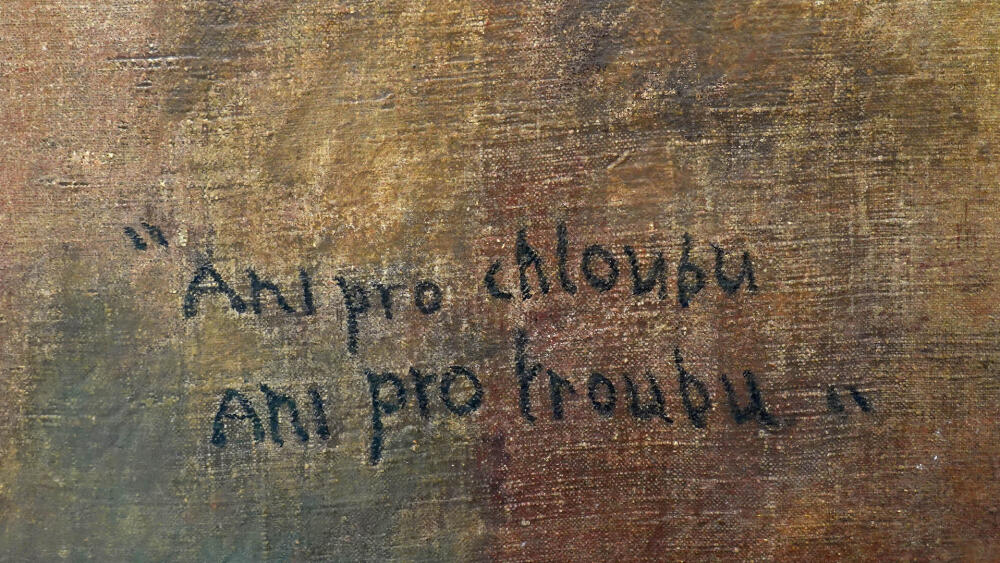 "Ani pro chloubu
Ani pro troubu"